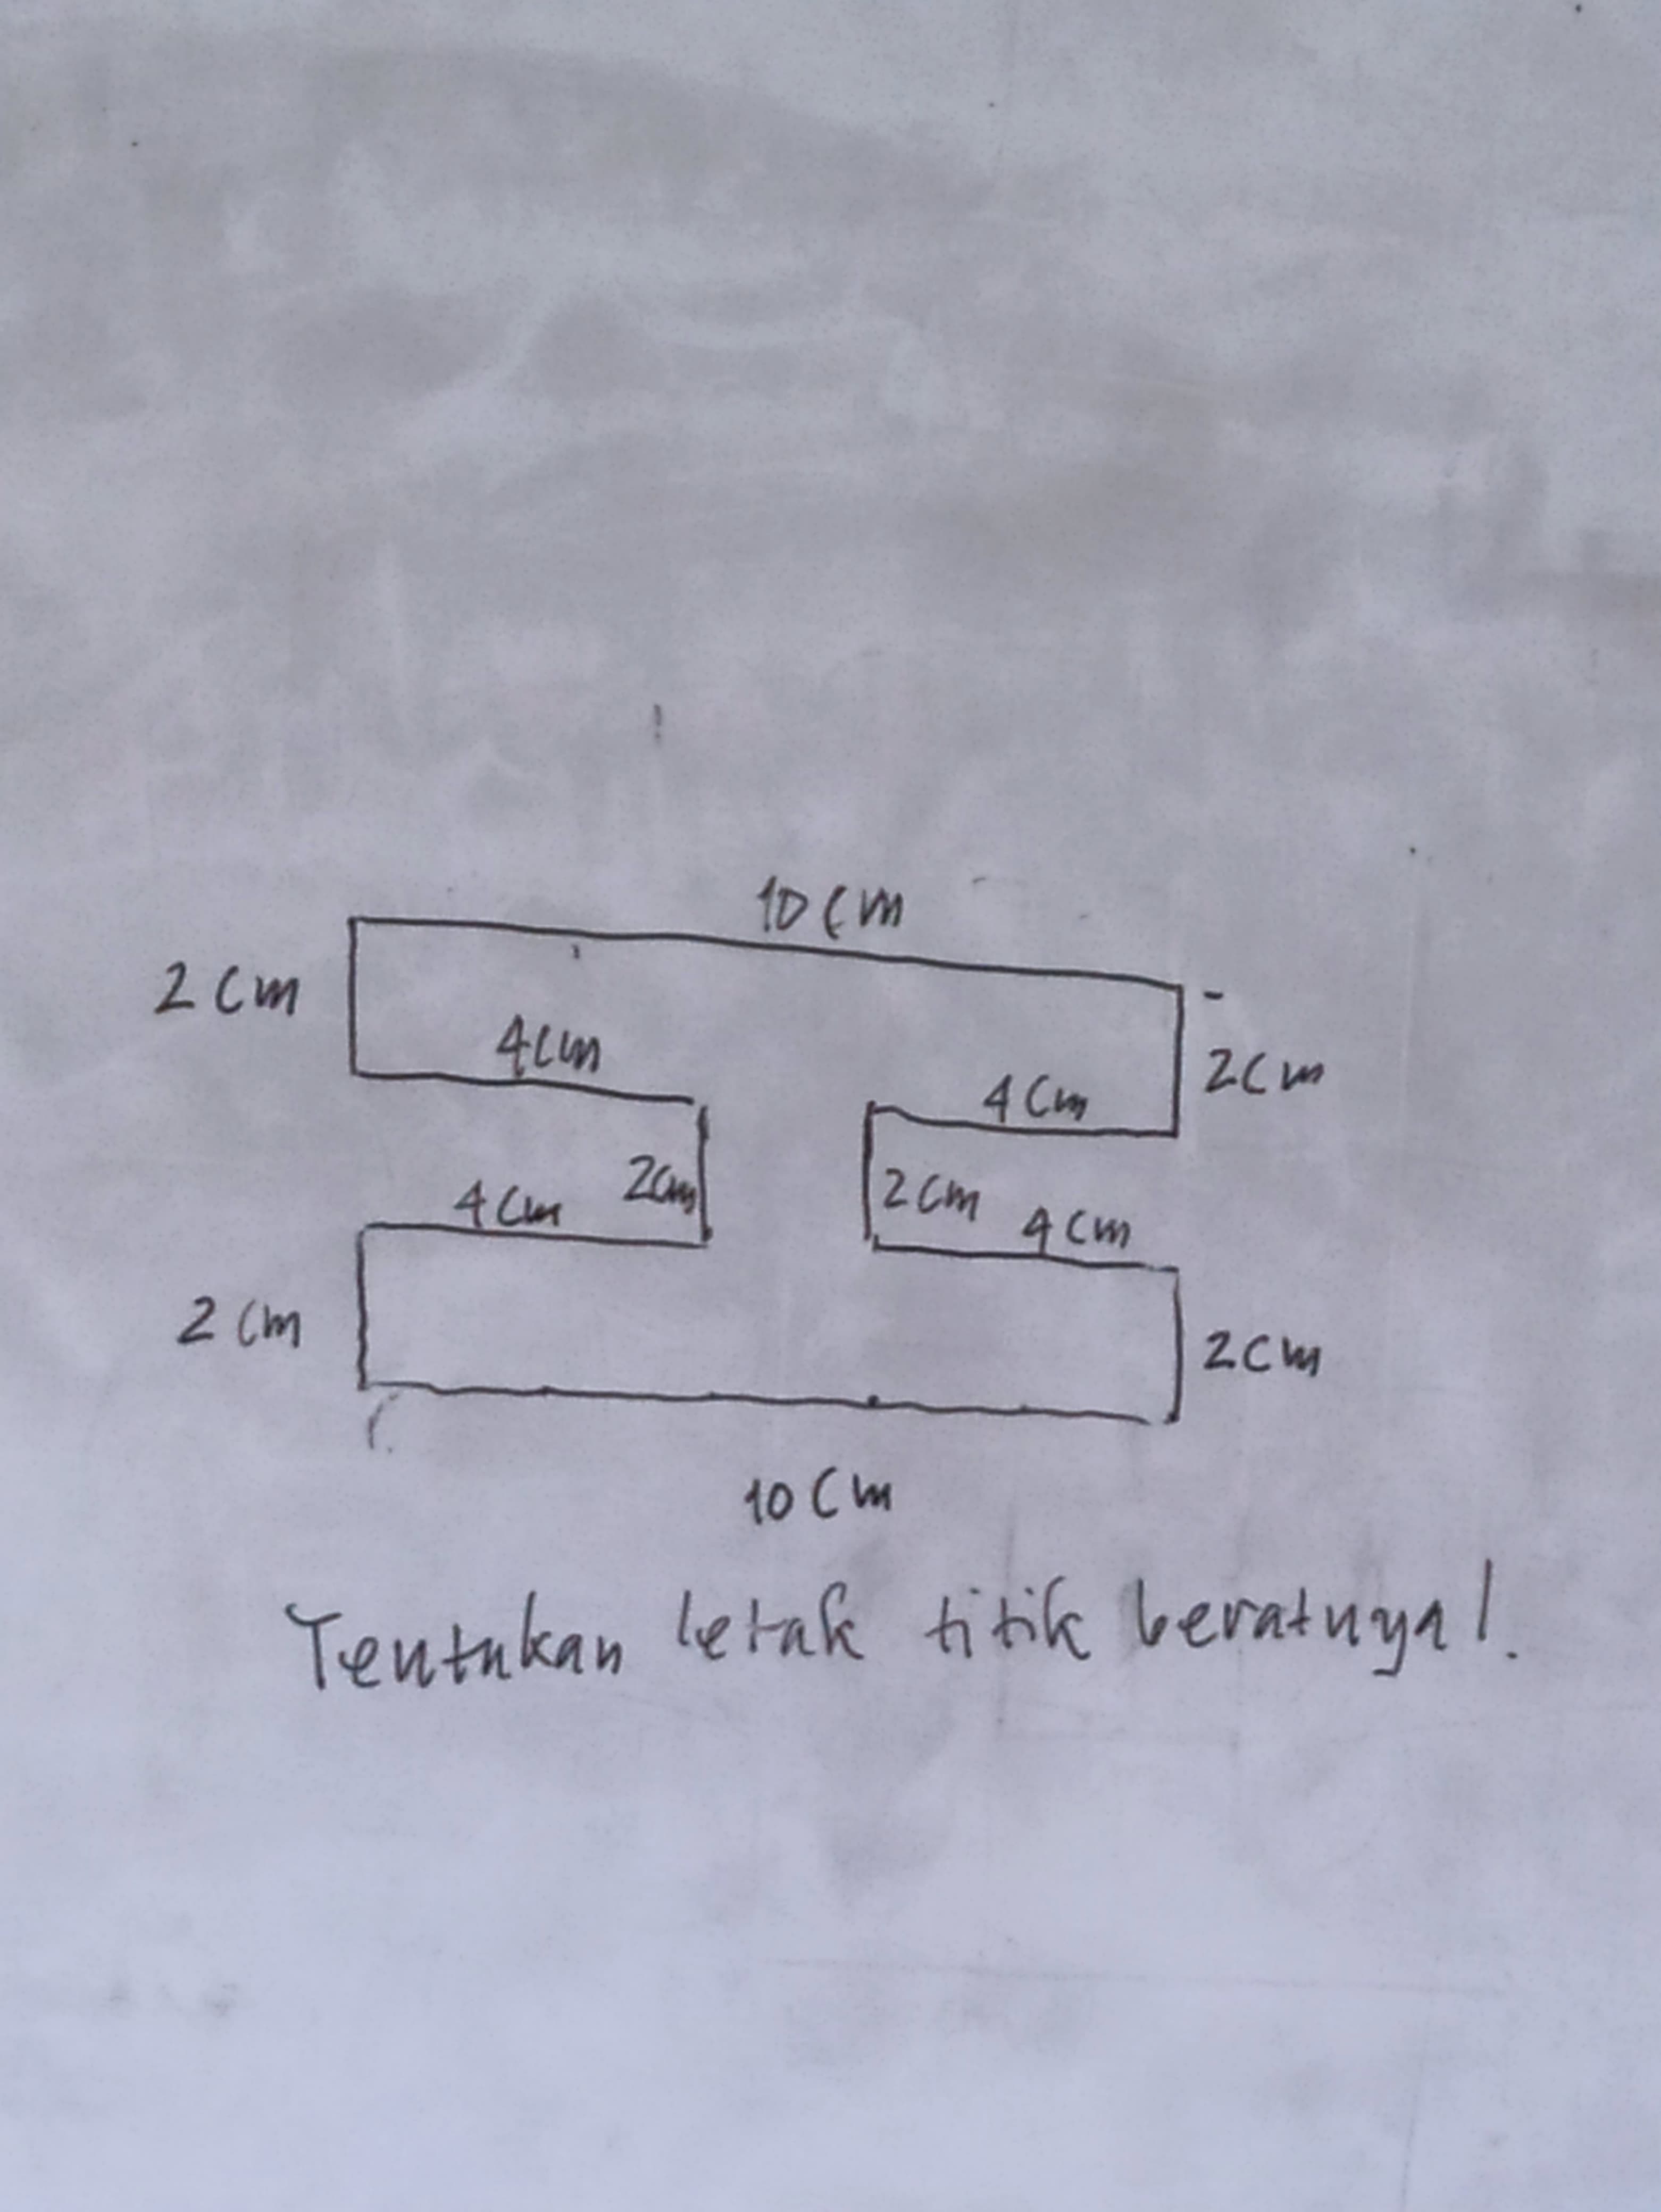 10 cm
2 cm
4 cm
2 cm
4 cm
2 cm
4 cm
2 cm
4 cm
2 cm
2 cm
10 cm
Tentukan letak titik beratnya!.